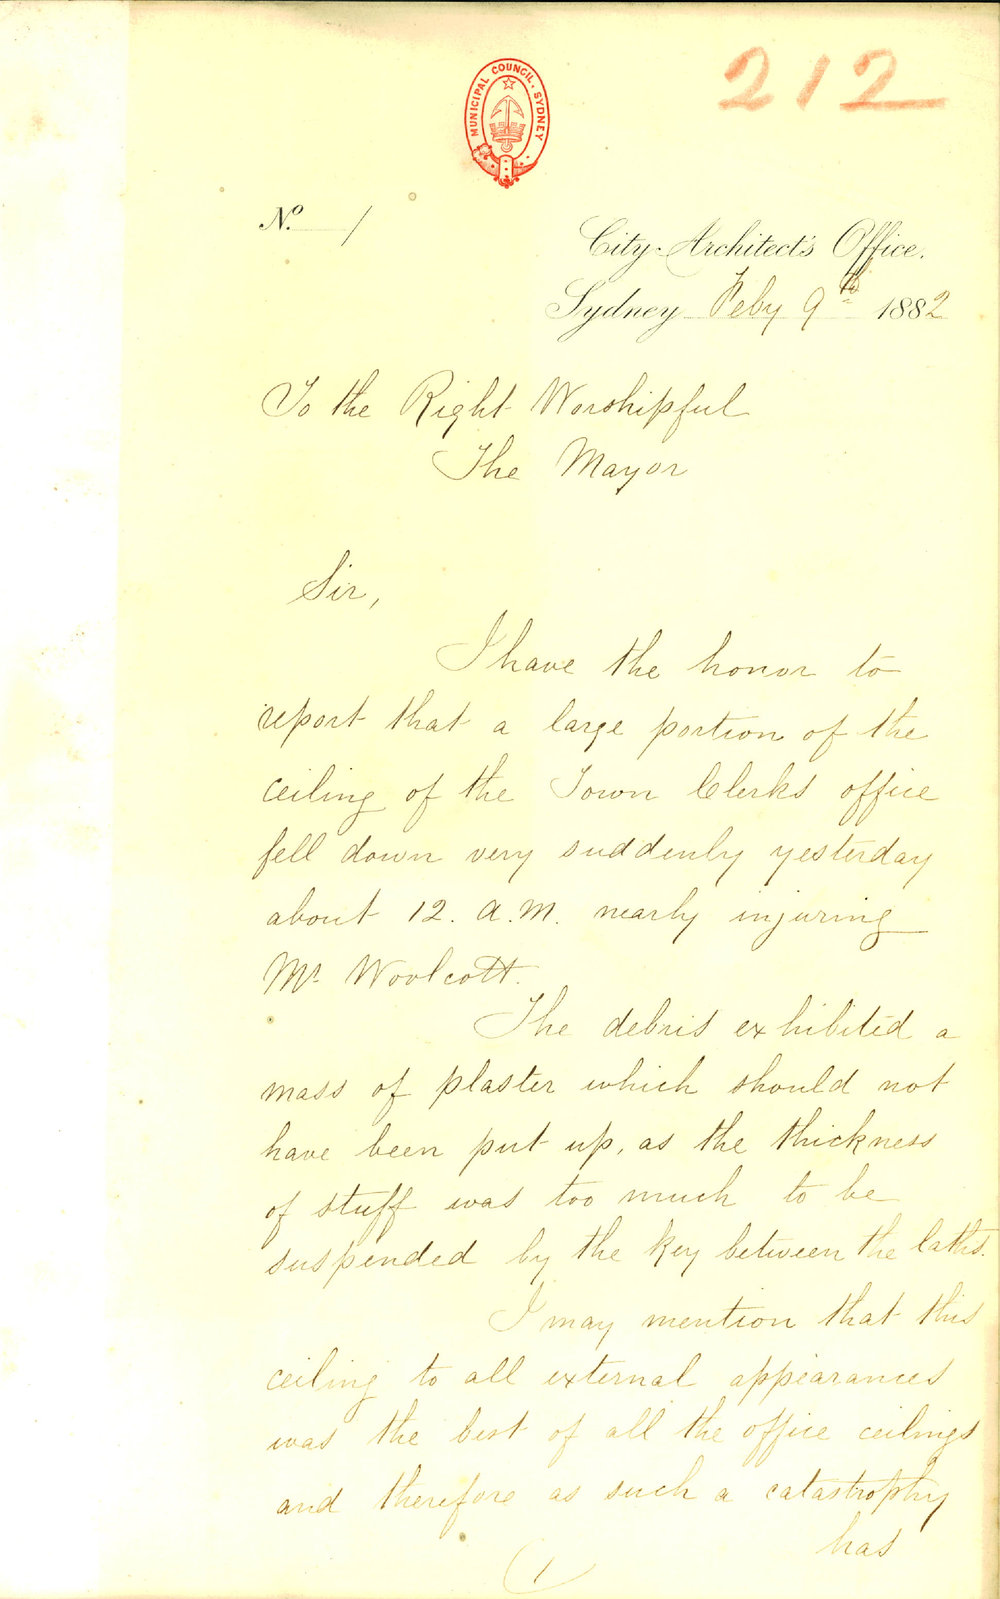 212
MUNICIPAL COUNCIL. SYDNEY
No. 1
City Architect's Office.
Sydney Feby 9th 1882
To the Right Worshipful
The Mayor
Sir,
I have the honor to
report that a large portion of the
ceiling of the Town Clerks office
fell down very suddenly yesterday
about 12. A.M. nearly injuring
Mr Woolcott.
The debris exhibited a
mass of plaster which should not
have been put up, as the thickness
of stuff was too much to be
suspended by the key between the laths.
I may mention that this
ceiling to all external appearances
was the best of all the office ceilings
and therefore as such a catastrophy
has
1